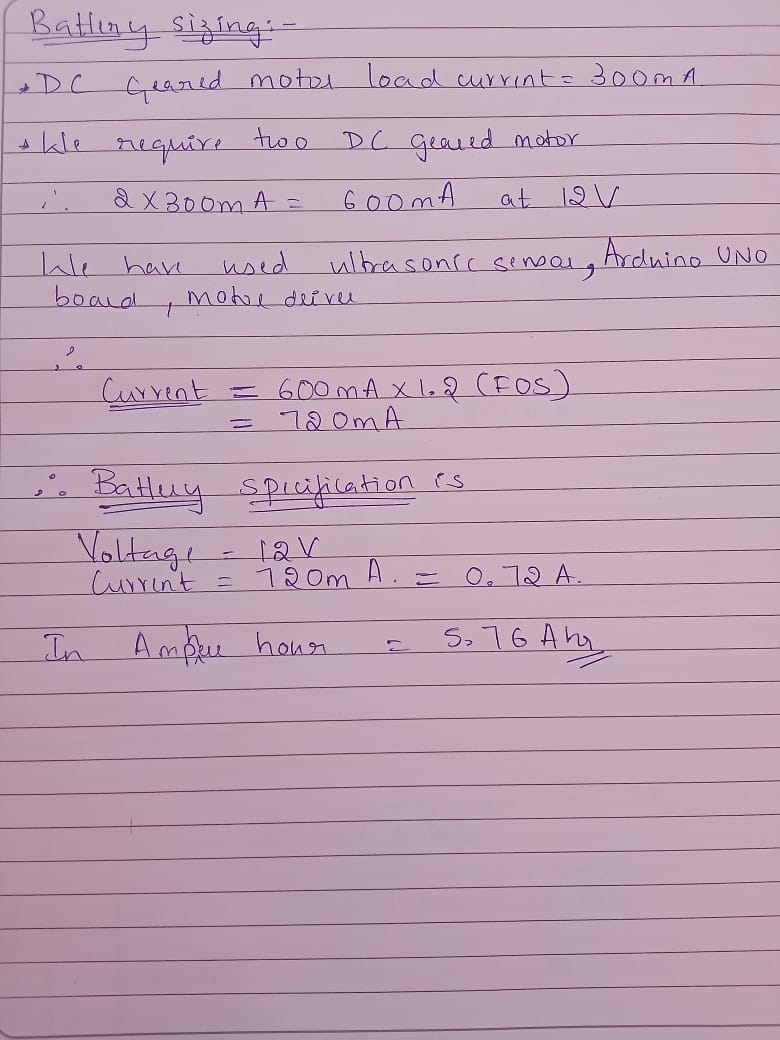 Battery sizing:-
* DC Geared motor load current = 300mA
* We require two DC geared motor
∴ 2 X 300mA = 600mA at 12V
We have used ultrasonic sensor, Arduino UNO
board, motor driver
∴
Current = 600mA X 1.2 (FOS)
= 720mA
∴ Battery specification is
Voltage = 12V
Current = 720mA. = 0.72 A.
In Ampere hour = 5.76 Ahr